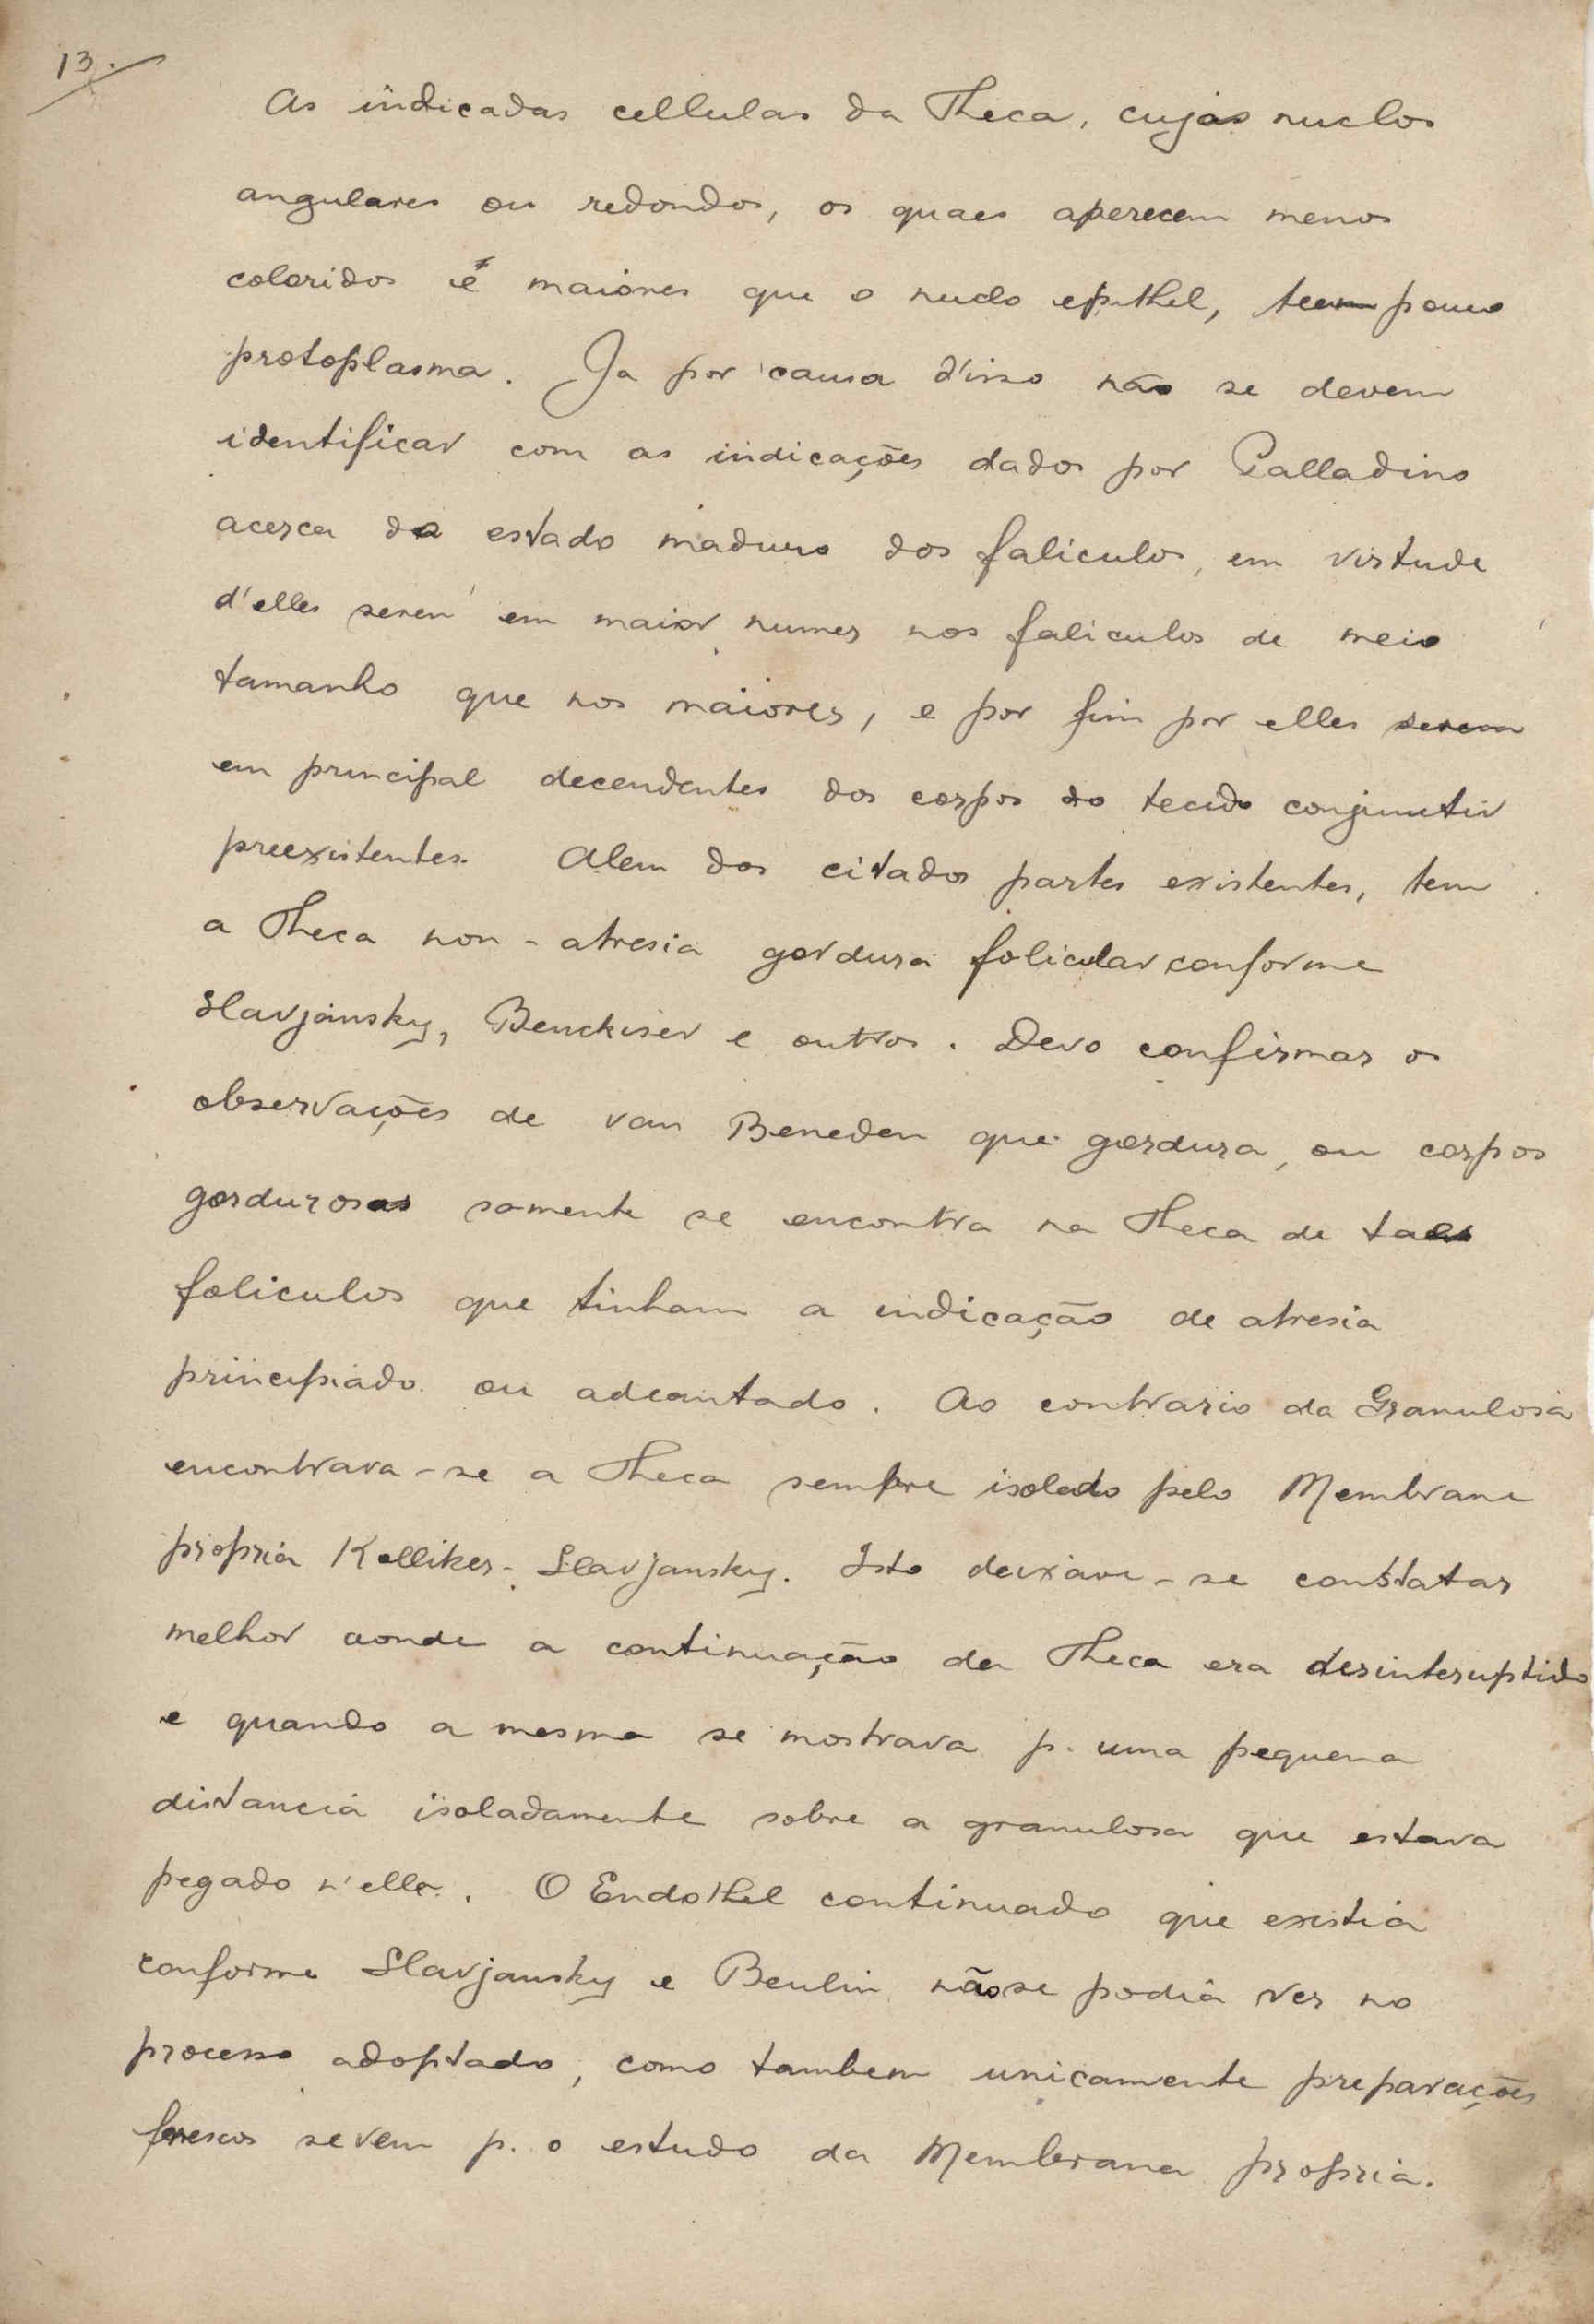 13.
As indicadas cellulas da Theca, cujas nuclos
angulares ou redondos, os quaes aperecem menos
coloridos é maiores que o nuclo epithel, teem pouco
protoplasma. Ja por causa d'isso não se devem
identificar com as indicações dados por Palladino
acerca do estado maduro dos faliculos, em virtude
d'elles seren em maior numer nos faliculos de meio
tamanho que nos maiores, e por fim por elles serem
em principal decendentes dos corpos do tecido conjunctiv
preexistentes. Alem dos citados partes existentes, tem
a Theca non-atresia gordura folicular conforme
Slavjansky, Benckiser e outros. Devo confirmar os
observações de van Beneden que gordura, ou corpos
gordurosos somente se encontra na Theca de taes
foliculos que tinham a indicação de atresia
principiado ou adeantado. Ao contrario da Granulosa
encontrava-se a Theca sempre isolado pelo Membrane
propria Kolliker-Slavjansky. Isto deixava-se constatar
melhor aonde a continuação da Theca era desinteruptido
e quando a mesma se mostrava p. uma pequena
distancia isoladamente sobre a granulosa que estava
pegado n'ella. O Endothel continuado que existia
conforme Slavjansky e Beulin não se podia ver no
processo adoptado, como tambem unicamente preparações
frescos sevem p. o estudo da Membrana propria.